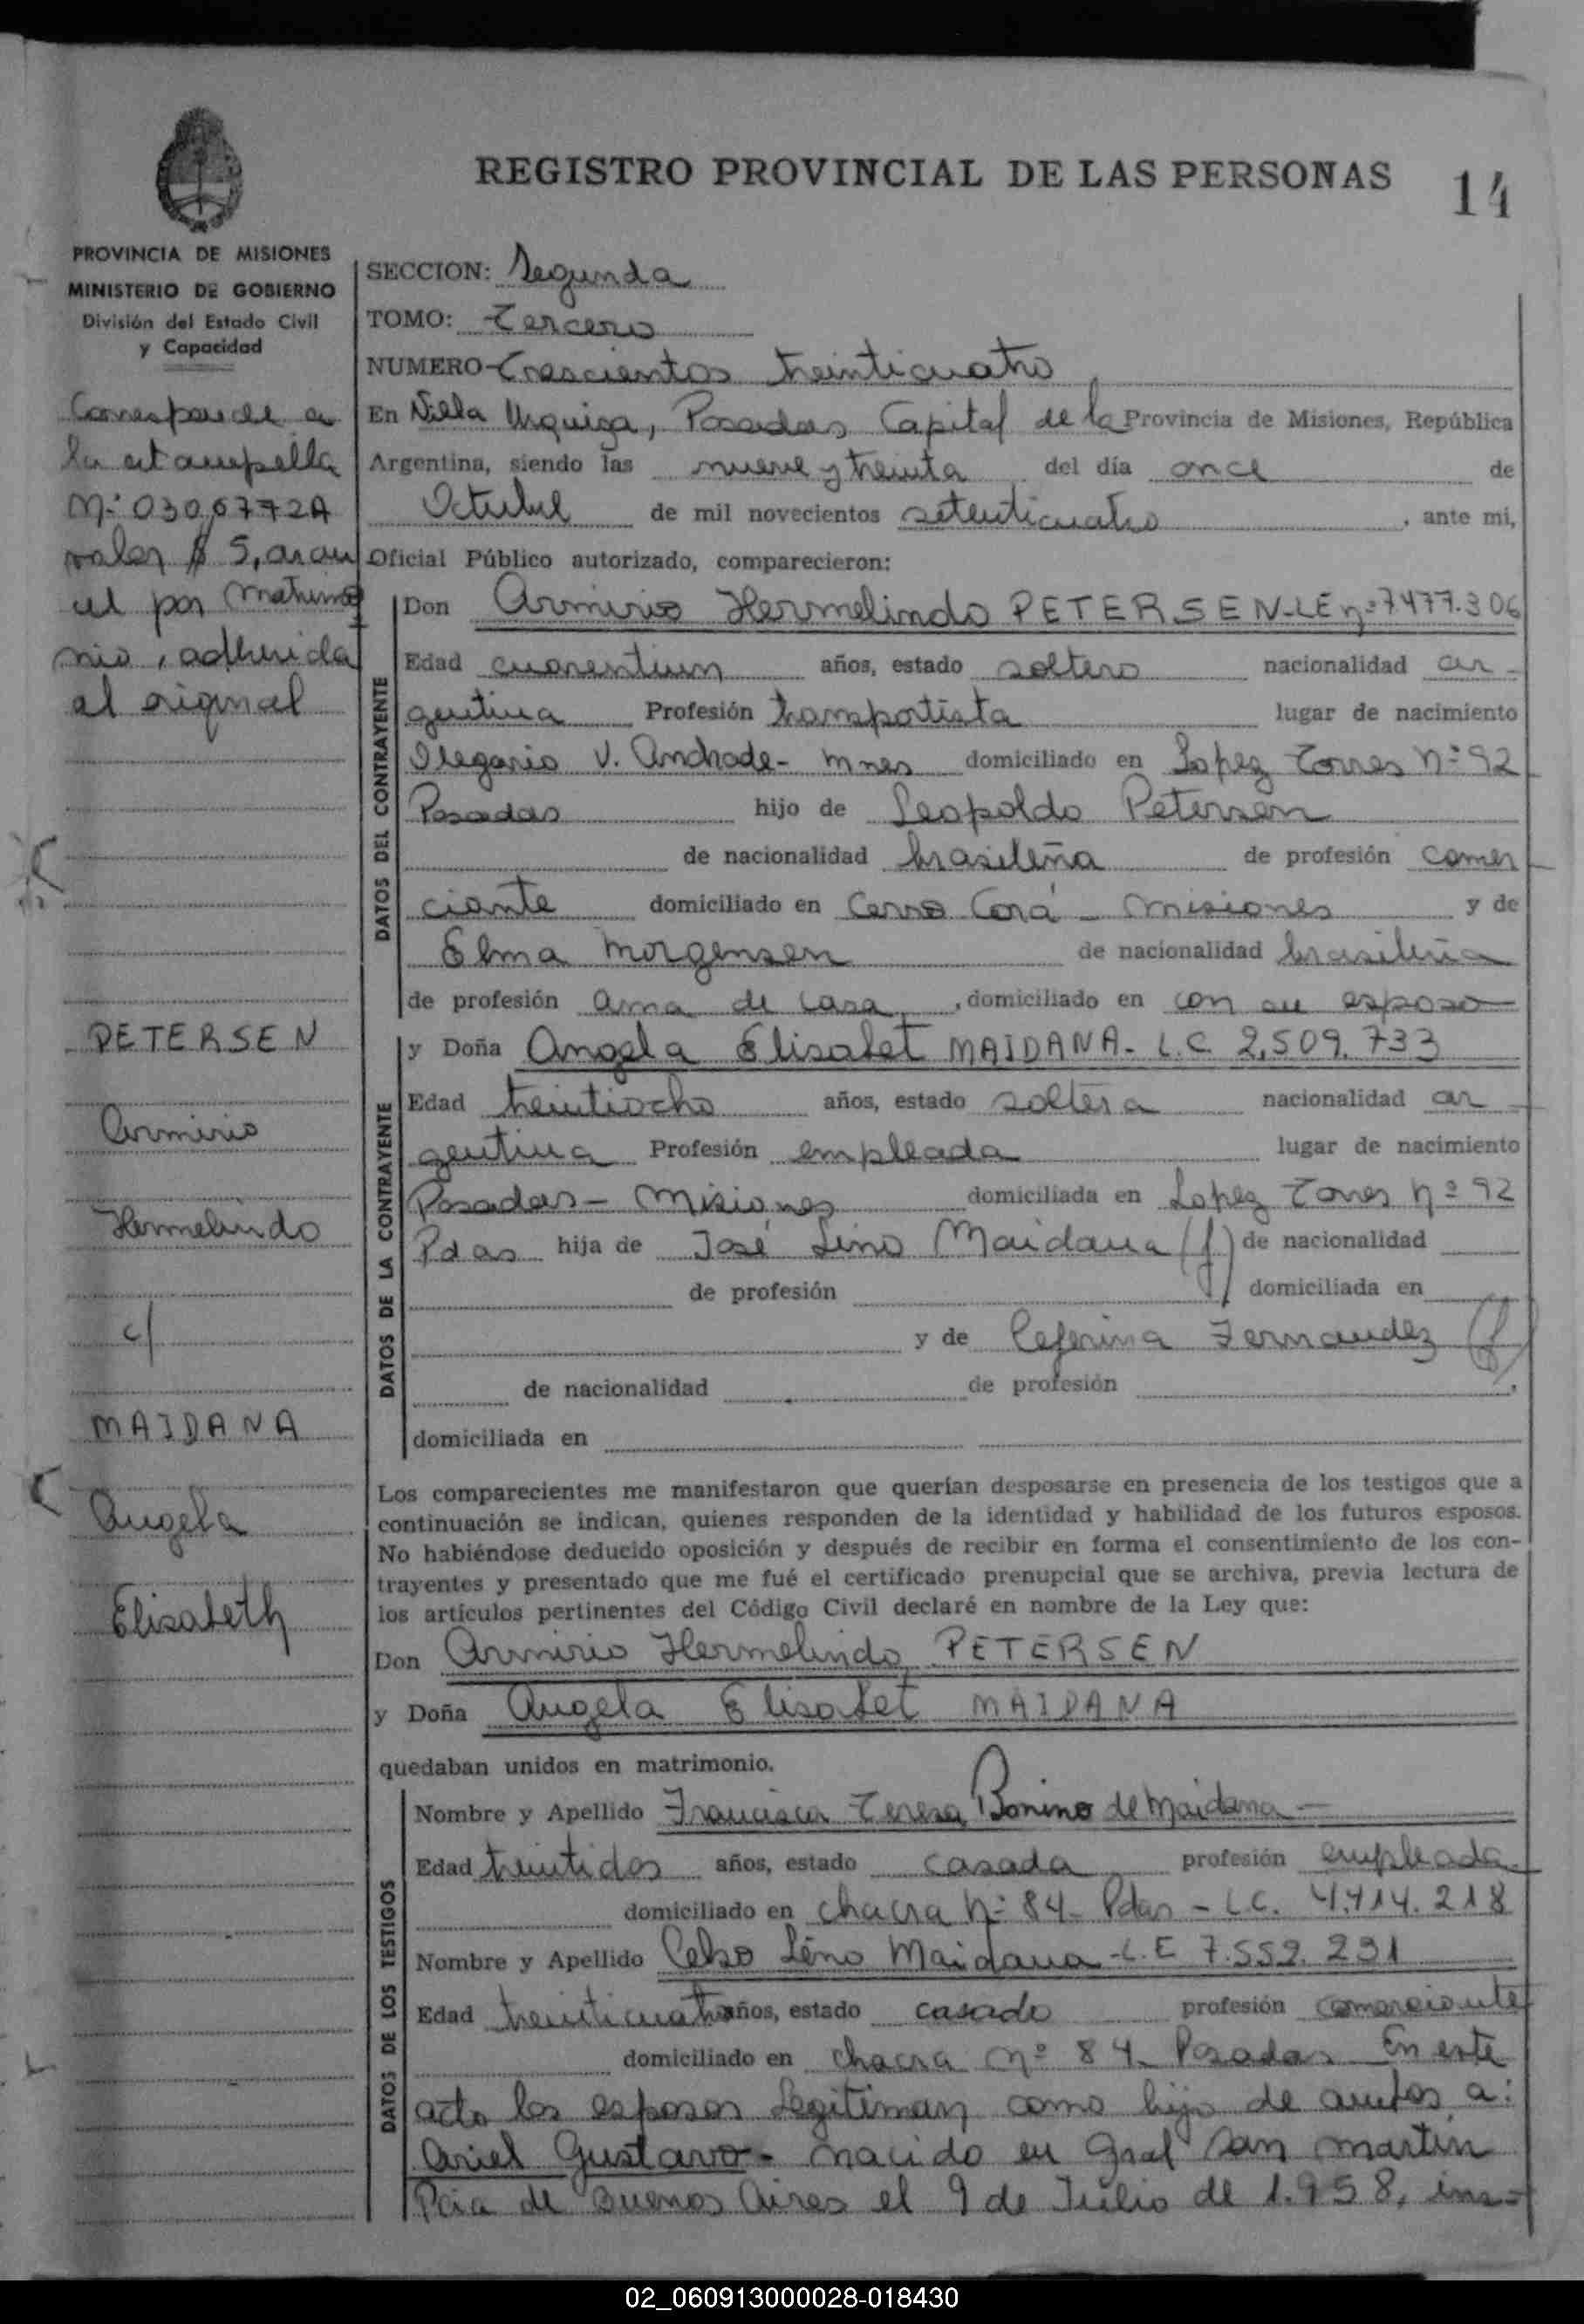 REGISTRO PROVINCIAL DE LAS PERSONAS
14
PROVINCIA DE MISIONES
MINISTERIO DE GOBIERNO
División del Estado Civil
y Capacidad
Corresponde a
la estampilla
Nº 0300772A
valor $ 5, aran
cel por matrimo
nio, adherida
al original
PETERSEN
Arminio
Hermelindo
c/
MAIDANA
Angela
Elisabeth
SECCION: Segunda
TOMO: Tercero
NUMERO Trescientos treinticuatro
En Villa Urquiza, Posadas, Capital de la Provincia de Misiones, República
Argentina, siendo las nueve y treinta del día once de
Octubre de mil novecientos setenticuatro, ante mi,
Oficial Público autorizado, comparecieron:
DATOS DEL CONTRAYENTE
Don Arminio Hermelindo PETERSEN-LE nº 7477.306
Edad cuarentiun años, estado soltero nacionalidad ar-
gentina Profesión transportista lugar de nacimiento
Olegario V. Andrade- Mnes domiciliado en Lopez Torres nº 92
Posadas hijo de Leopoldo Petersen
de nacionalidad brasileña de profesión comer
ciante domiciliado en Cerro Corá - Misiones y de
Elma Morgensen de nacionalidad brasileña
de profesión ama de casa, domiciliado en con su esposo
DATOS DE LA CONTRAYENTE
y Doña Angela Elisabet MAIDANA- L.C. 2,509.733
Edad treintiocho años, estado soltera nacionalidad ar-
gentina Profesión empleada lugar de nacimiento
Posadas - Misiones domiciliada en Lopez Torres nº 92
Pdas hija de José Lino Maidana (f) de nacionalidad
de profesión domiciliada en
y de Ceferina Fernandez (f)
de nacionalidad de profesión
domiciliada en
Los comparecientes me manifestaron que querían desposarse en presencia de los testigos que a
continuación se indican, quienes responden de la identidad y habilidad de los futuros esposos.
No habiéndose deducido oposición y después de recibir en forma el consentimiento de los con-
trayentes y presentado que me fué el certificado prenupcial que se archiva, previa lectura de
los artículos pertinentes del Código Civil declaré en nombre de la Ley que:
Don Arminio Hermelindo PETERSEN
y Doña Angela Elisabet MAIDANA
quedaban unidos en matrimonio.
DATOS DE LOS TESTIGOS
Nombre y Apellido Francisca Teresa Bonino de Maidana -
Edad treintidos años, estado casada profesión empleada
domiciliado en chacra nº 84- Pdas - L.C. 4,414.218
Nombre y Apellido Celso Lino Maidana -L.E 7.552.231
Edad treinticuatro años, estado casado profesión comerciante
domiciliado en chacra nº 84 Posadas En este
acto los esposos legitiman como hijo de ambos a:
Ariel Gustavo- nacido en Gral San Martin
Pcia de Buenos Aires el 9 de Julio de 1.958, ins-
02_060913000028-018430